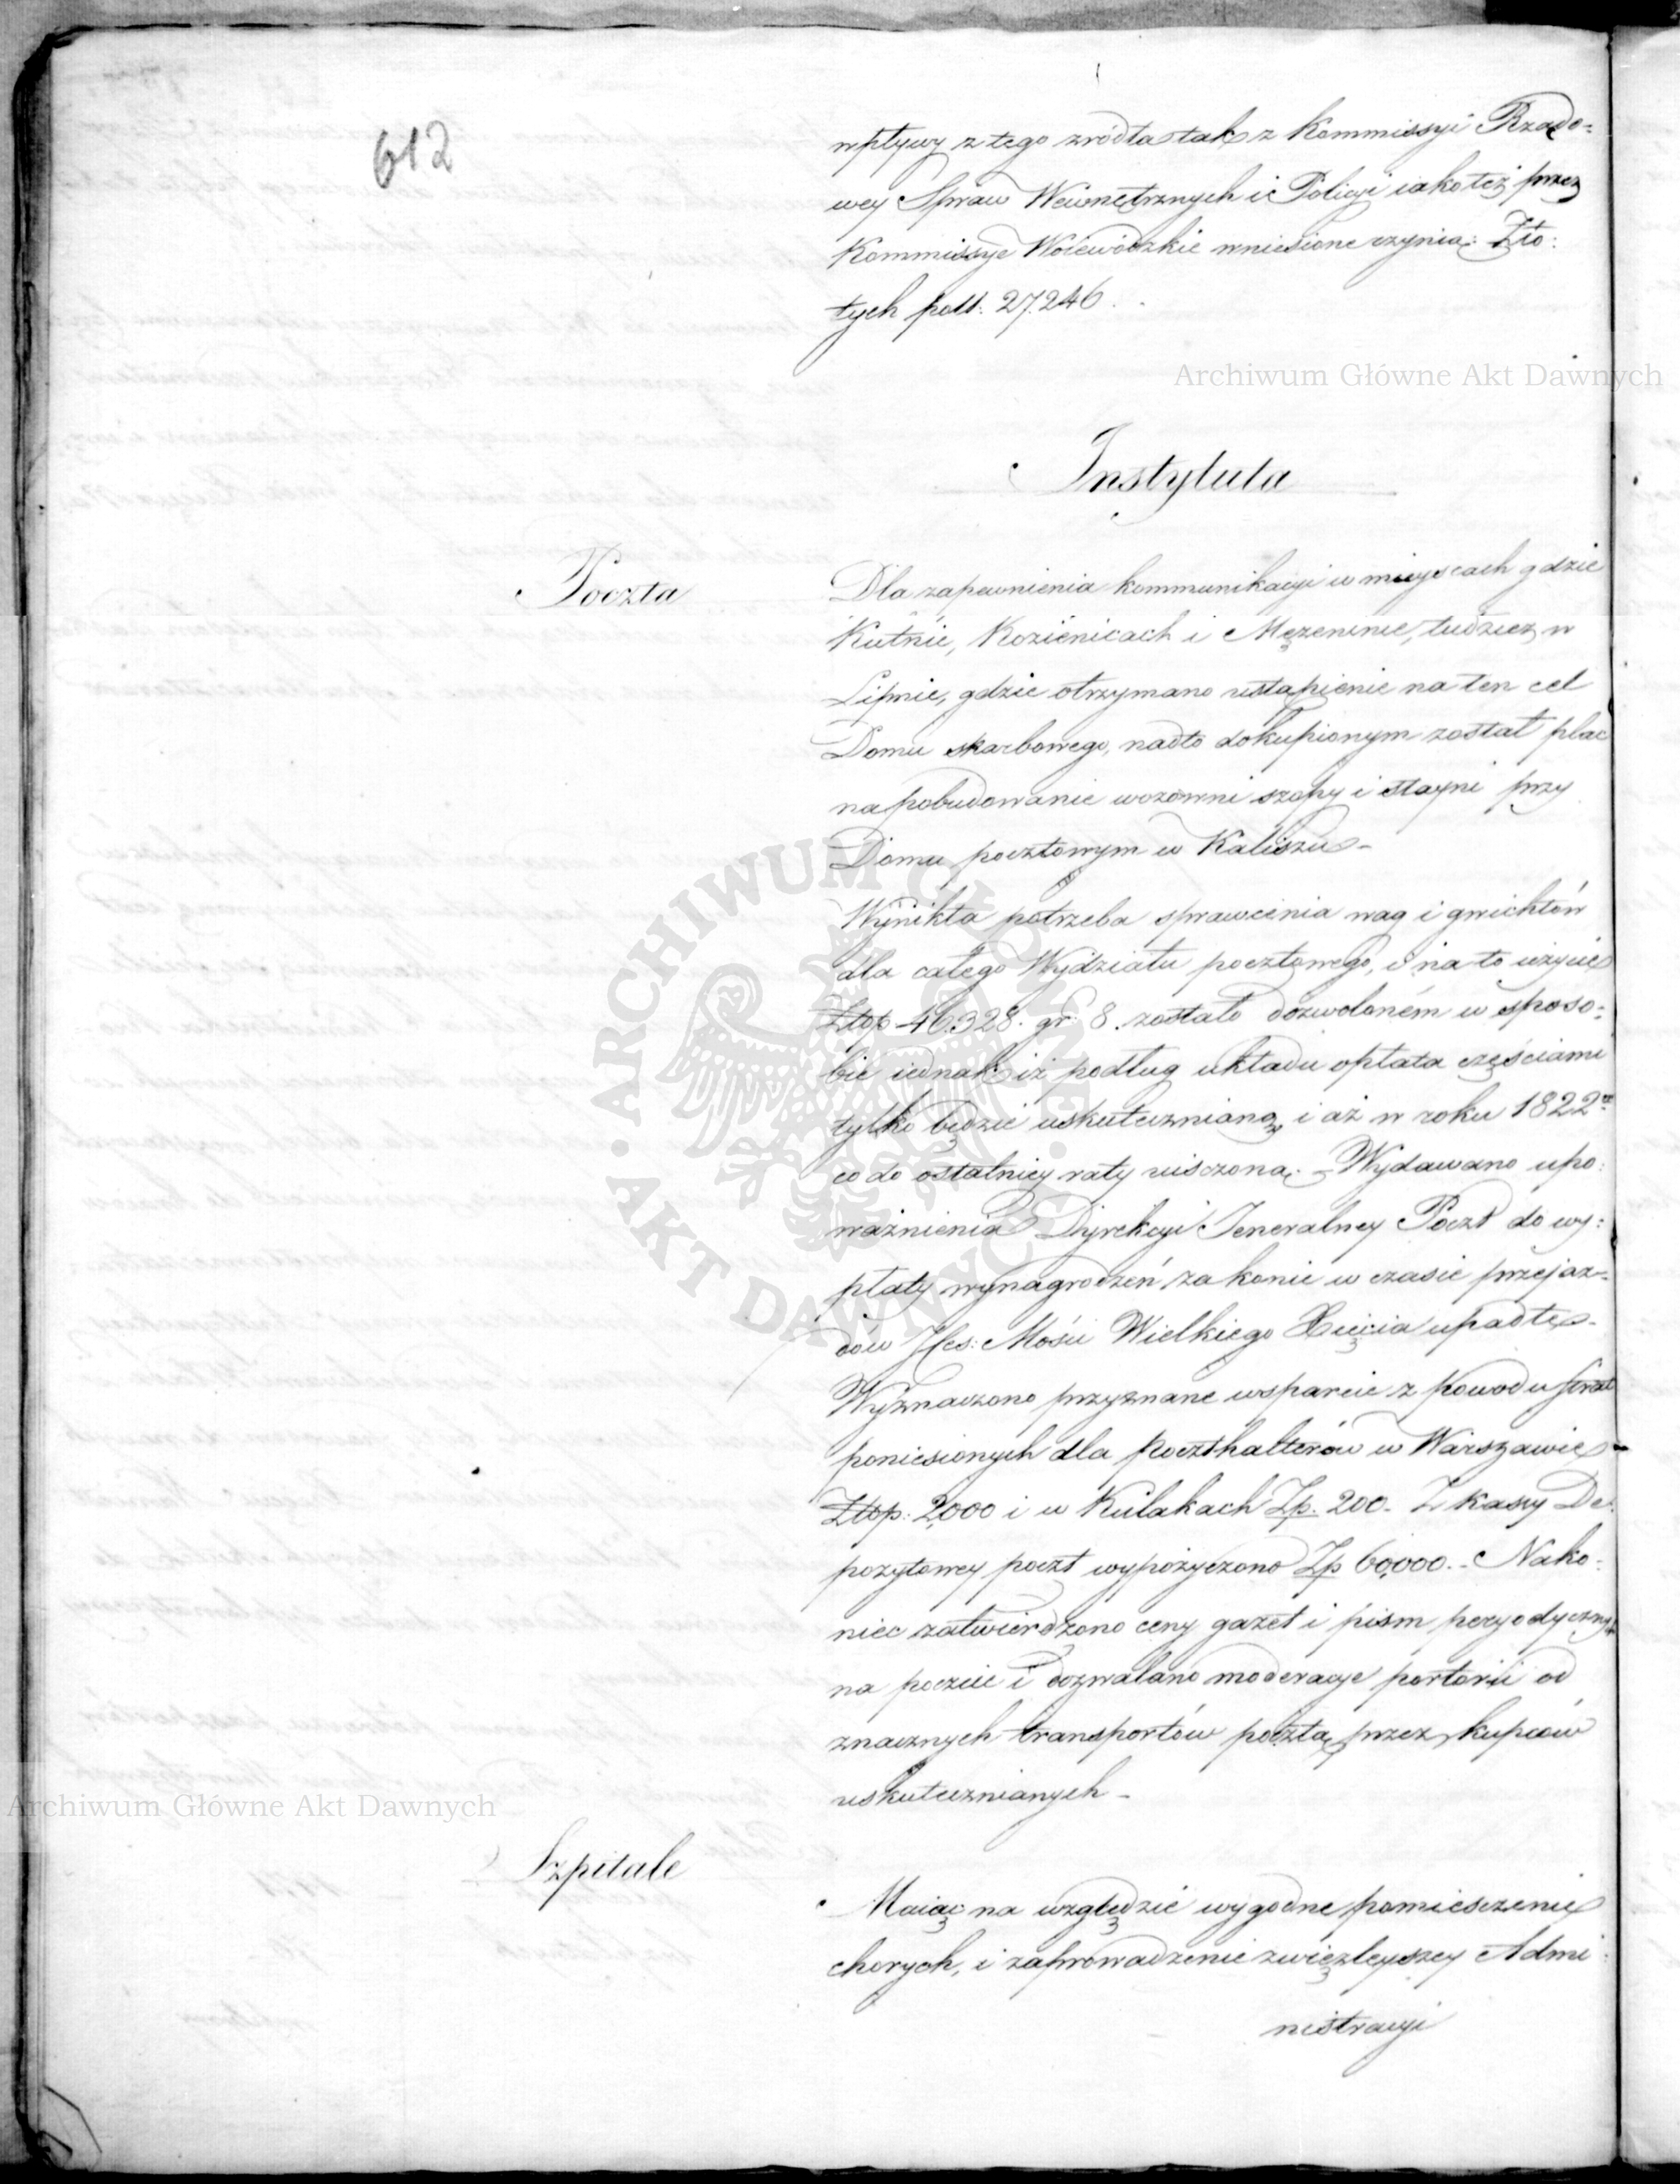 612
wpływy z tego zródła tak z Kommissyi Rządo=
wey Spraw Wewnętrznych i Policyi iako też przez
Kommissye Woiewódzkie wniesione czynią: Zło:
tych poll: 27.246.
Archiwum Główne Akt Dawnych
Instytuta
Poczta
Dla zapewnienia kommunikacyi w mieyscach gdzie
Kutnie, Kozienicach i Mężeninie, tudzież w
Lipnie, gdzie otrzymano ustąpienie na ten cel
Domu skarbowego, nadto dokupionym został plac
na pobudowanie wozowni szopy i stayni przy
Domu pocztowym w Kaliszu -
Wynikła potrzeba sprawienia wag i gwichtów
dla całego Wydziału pocztowego, i na to użycie
Złop 46.328. gr: 8. zostało dozwoloném w sposo=
bie iednak iż podług układu opłata częściami
tylko będzie uskutecznianą, i aż w roku 1822
co do ostatniey raty uisczoną. - Wydawano upo:
ważnienia Dyrekcyi Jeneralney Poczt do wy:
płaty wynagrodzeń za konie w czasie przejaz=
dów Jego Ces: Mości Wielkiego Xięcia upadłe. -
Wyznaczono przyznane wsparcie z powodu strat
poniesionych dla Poczthalterów w Warszawie
Złop: 2,000 i w Kulakach Zp. 200. Z kassy De
pozytowey poczt wypożyczono Zp 60,000. - Nako:
niec zatwierdzono ceny gazet i pism peryodycznych
na poczcie i dozwalano moderacye portorii od
znacznych transportów pocztą przez kupców
uskutecznianych -
Archiwum Główne Akt Dawnych
Szpitale
Maiąc na względzie wygodne pomiesczenie
chorych, i zaprowadzenie zwięzleyszey Admi:
nistracyi
ARCHIWUM GŁÓWNE AKT DAWNYCH